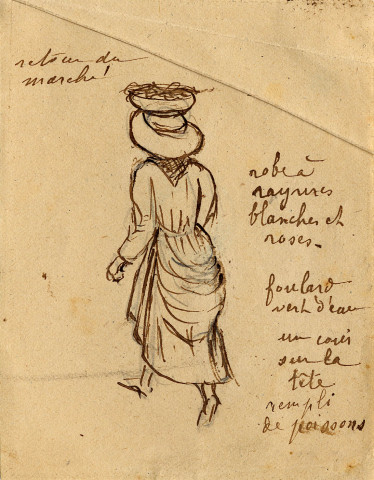 retour du
marché
robe à
rayures
blanches et
roses.
foulard
vert d'eau
un
sur la
tête
rempli
de poissons